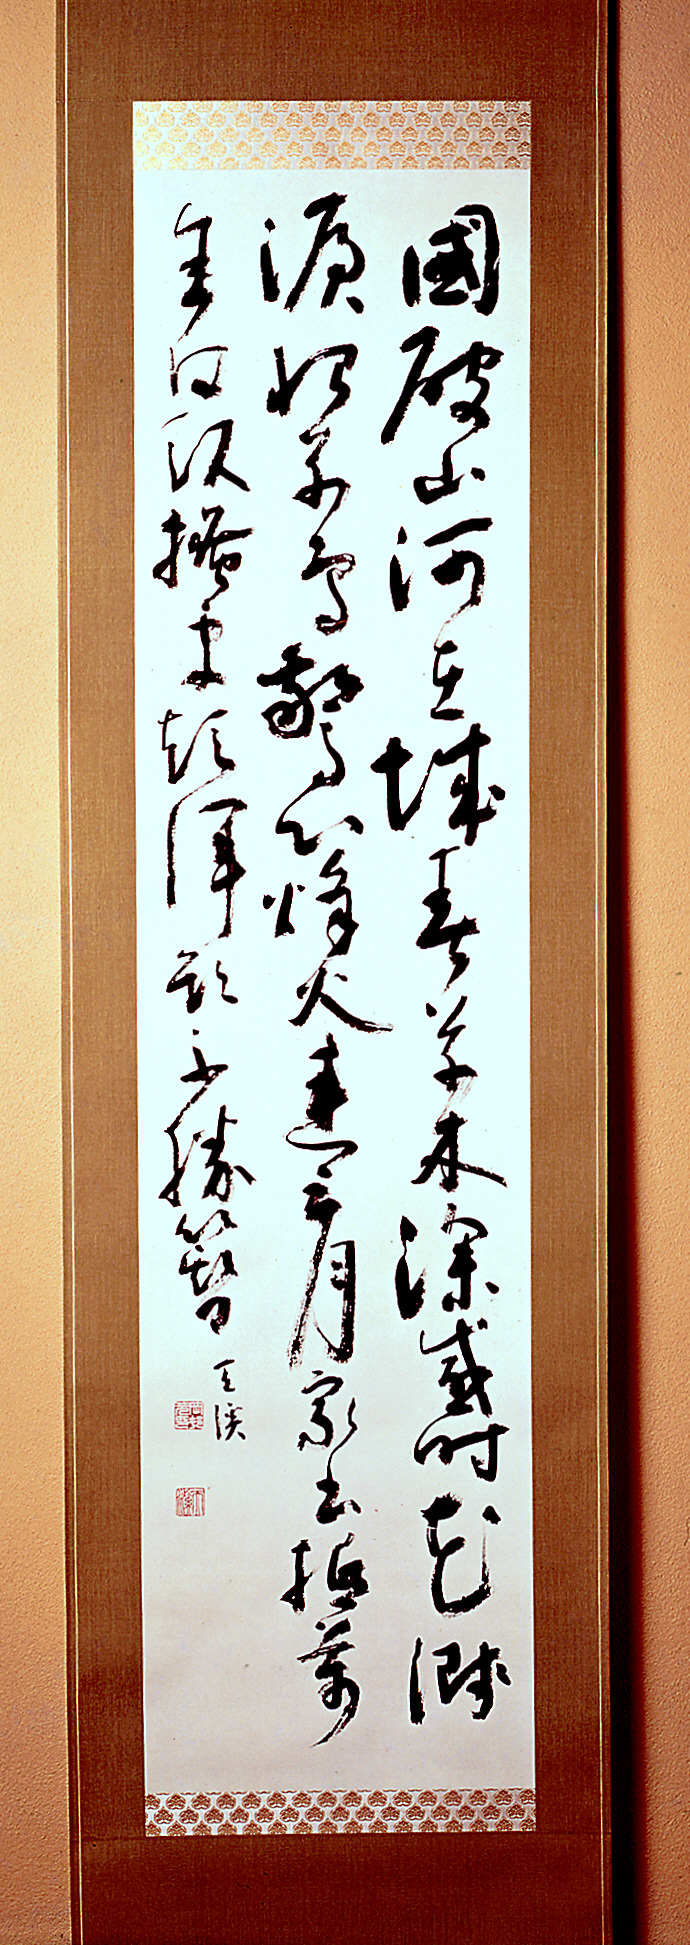 國破山河在城春草木深感時花濺
淚恨別鳥驚心烽火連三月家書抵萬
金白頭搔更短渾欲不勝簪
天溪